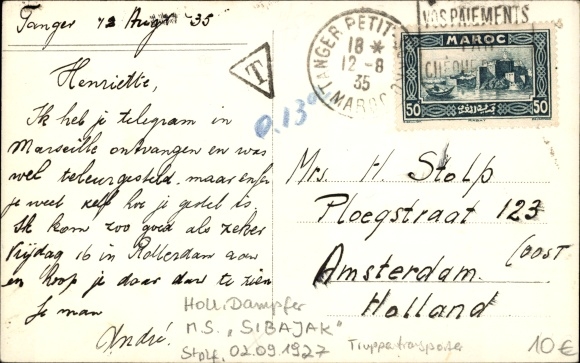 Tanger 12 Aug. 35
Henriette,
Ik heb je telegram in
Marseille ontvangen en was
wel teleurgesteld. maar enfin
je weet zelf hoe je gestel is.
Ik kom zoo goed als zeker
Vrijdag 16 in Rotterdam aan
en hoop je daar dan te zien
Je man
André.
T
0.13
TANGER PETIT
18 *
12-8
35
MAROC
VOS PAIEMENTS
PAR
CHEQUE
MAROC
50 50
RABAT
Mrs. H. Stolp
Ploegstraat 123
(OOST
Amsterdam.
Holland
Holl. Dampfer
M.S. „SIBAJAK"
Stolf. 02.09.1927
Truppentransporter
10€